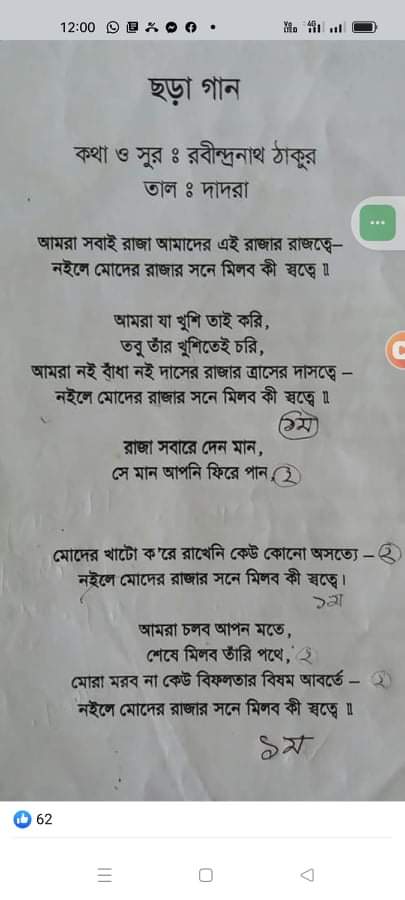 12:00
ছড়া গান
কথা ও সুর ঃ রবীন্দ্রনাথ ঠাকুর
তাল ঃ দাদরা
আমরা সবাই রাজা আমাদের এই রাজার রাজত্বে–
নইলে মোদের রাজার সনে মিলব কী স্বত্বে ॥
আমরা যা খুশি তাই করি,
তবু তাঁর খুশিতেই চরি,
আমরা নই বাঁধা নই দাসের রাজার ত্রাসের দাসত্বে –
নইলে মোদের রাজার সনে মিলব কী স্বত্বে ॥
১ম
রাজা সবারে দেন মান,
সে মান আপনি ফিরে পান, ২
মোদের খাটো ক'রে রাখেনি কেউ কোনো অসত্যে – ২
নইলে মোদের রাজার সনে মিলব কী স্বত্বে।
১ম
আমরা চলব আপন মতে,
শেষে মিলব তাঁরি পথে, ২
মোরা মরব না কেউ বিফলতার বিষম আবর্তে – ২
নইলে মোদের রাজার সনে মিলব কী স্বত্বে ॥
১ম
62